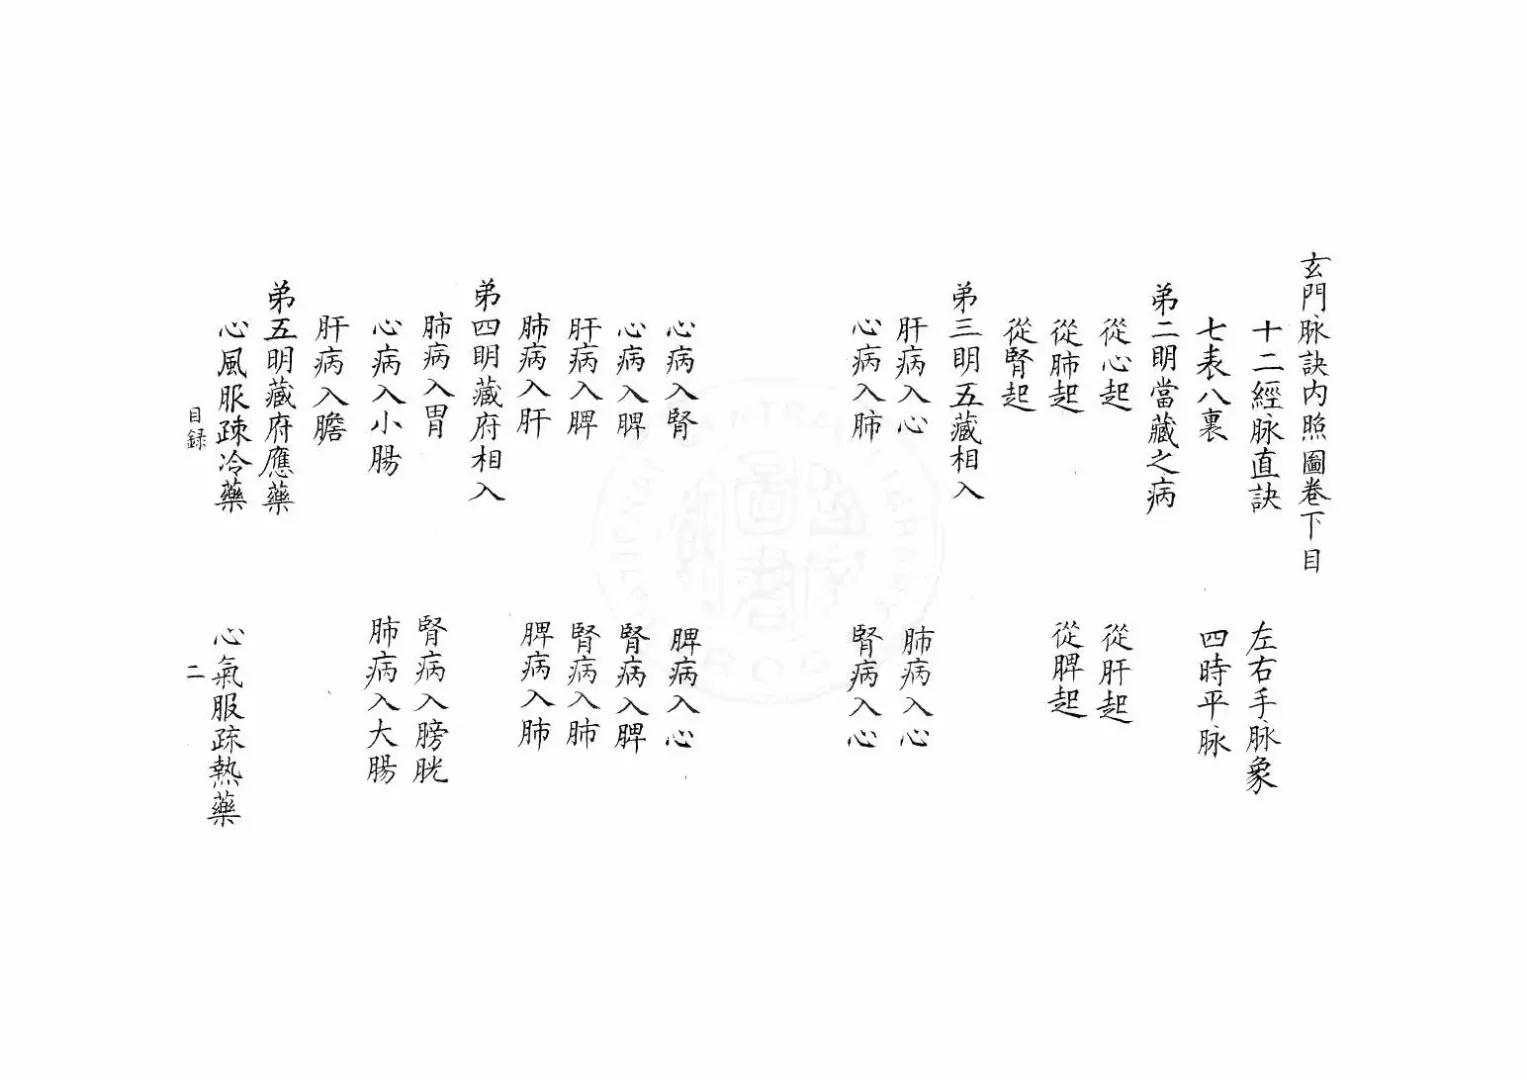 玄門脉訣内照圖卷下目
十二經脉直訣 左右手脉象
七表八裏 四時平脉
弟二明當藏之病
從心起 從肝起
從肺起 從脾起
從腎起
弟三明五藏相入
肝病入心 肺病入心
心病入肺 腎病入心
心病入腎 脾病入心
心病入脾 腎病入脾
肝病入脾 腎病入肺
肺病入肝 脾病入肺
弟四明藏府相入
肺病入胃 腎病入膀胱
心病入小腸 肺病入大腸
肝病入膽
弟五明藏府應藥
心風服疎冷藥 心氣服疏熱藥
目録 二